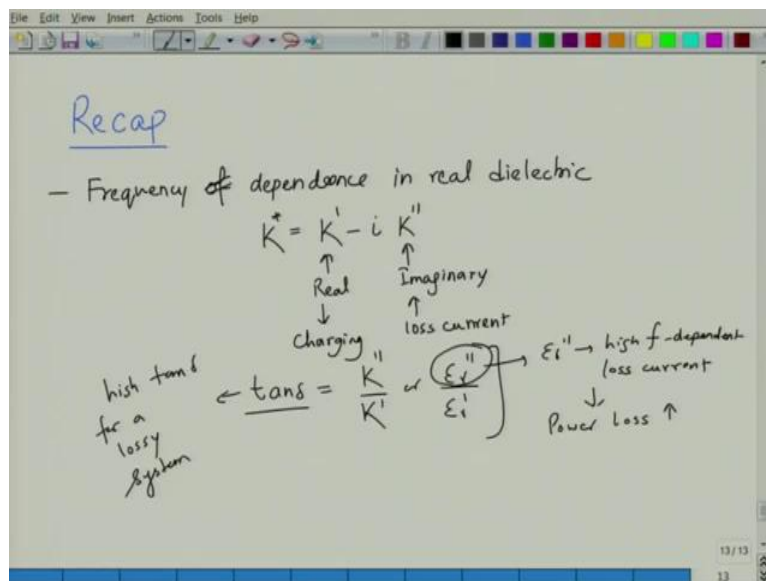 File Edit View Insert Actions Tools Help
B I
Recap
— Frequency of dependence in real dielectric
K* = K' - i K"
↑ ↑
Real Imaginary
↓ ↑
Charging loss current
high tanδ for a lossy system ← tanδ = K"/K' or εr"/εr' → εr" → high f-dependent loss current
↓
Power Loss ↑
13/13
13